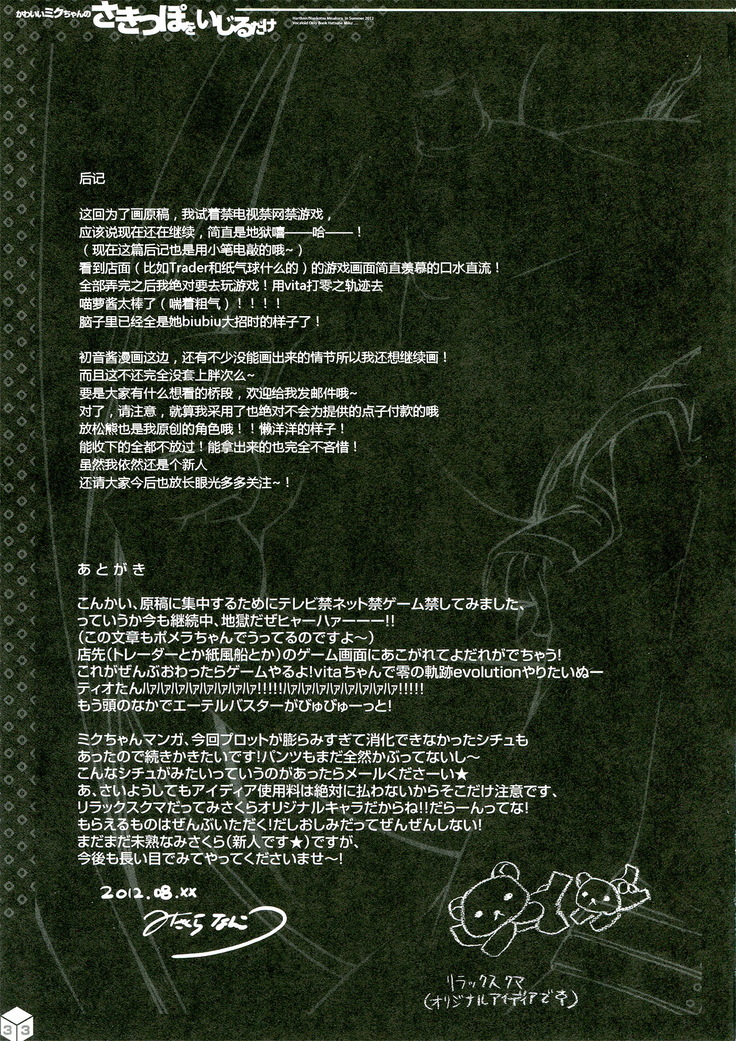 かわいいミクちゃんの さきっぽをいじるだけ
后记
这回为了画原稿，我试着禁电视禁网禁游戏，
应该说现在还在继续，简直是地狱嘻——哈——！
（现在这篇后记也是用小笔电敲的哦~）
看到店面（比如Trader和纸气球什么的）的游戏画面简直羡慕的口水直流！
全部弄完之后我绝对要去玩游戏！用vita打零之轨迹去
喵萝酱太棒了（喘着粗气）！！！！
脑子里已经全是她biubiu大招时的样子了！
初音酱漫画这边，还有不少没能画出来的情节所以我还想继续画！
而且这不还完全没套上胖次么~
要是大家有什么想看的桥段，欢迎给我发邮件哦~
对了，请注意，就算我采用了也绝对不会为提供的点子付款的哦
放松熊也是我原创的角色哦！！懒洋洋的样子！
能收下的全都不放过！能拿出来的也完全不吝惜！
虽然我依然还是个新人
还请大家今后也放长眼光多多关注~！
あとがき
こんかい、原稿に集中するためにテレビ禁ネット禁ゲーム禁してみました、
っていうか今も継続中、地獄だぜヒャーハァーーー!!
(この文章もポメラちゃんでうってるのですよ〜)
店先(トレーダーとか紙風船とか)のゲーム画面にあこがれてよだれがでちゃう!
これがぜんぶおわったらゲームやるよ!vitaちゃんで零の軌跡evolutionやりたいぬー
ティオたんﾊｧﾊｧﾊｧﾊｧﾊｧﾊｧﾊｧﾊｧ!!!!!ﾊｧﾊｧﾊｧﾊｧﾊｧﾊｧﾊｧﾊｧ!!!!!
もう頭のなかでエーテルバスターがびゅびゅーっと!
ミクちゃんマンガ、今回プロットが膨らみすぎて消化できなかったシチュも
あったので続きかきたいです!パンツもまだ全然かぶってないし〜
こんなシチュがみたいっていうのがあったらメールくださーい★
あ、さいようしてもアイディア使用料は絶対に払わないからそこだけ注意です、
リラックスクマだってみさくらオリジナルキャラだからね!!だらーんってな!
もらえるものはぜんぶいただく!だしおしみだってぜんぜんしない!
まだまだ未熟なみさくら(新人です★)ですが、
今後も長い目でみてやってくださいませ〜!
2012.08.xx
みさくらなんこつ
リラックスクマ
(オリジナルアイディアです)
33